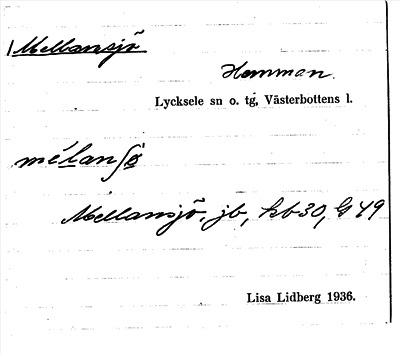 Mellansjö
Hemman.
Lycksele sn o. tg, Västerbottens l.
mélanʃö
Mellansjö, jb, hb 30, G 49
Lisa Lidberg 1936.